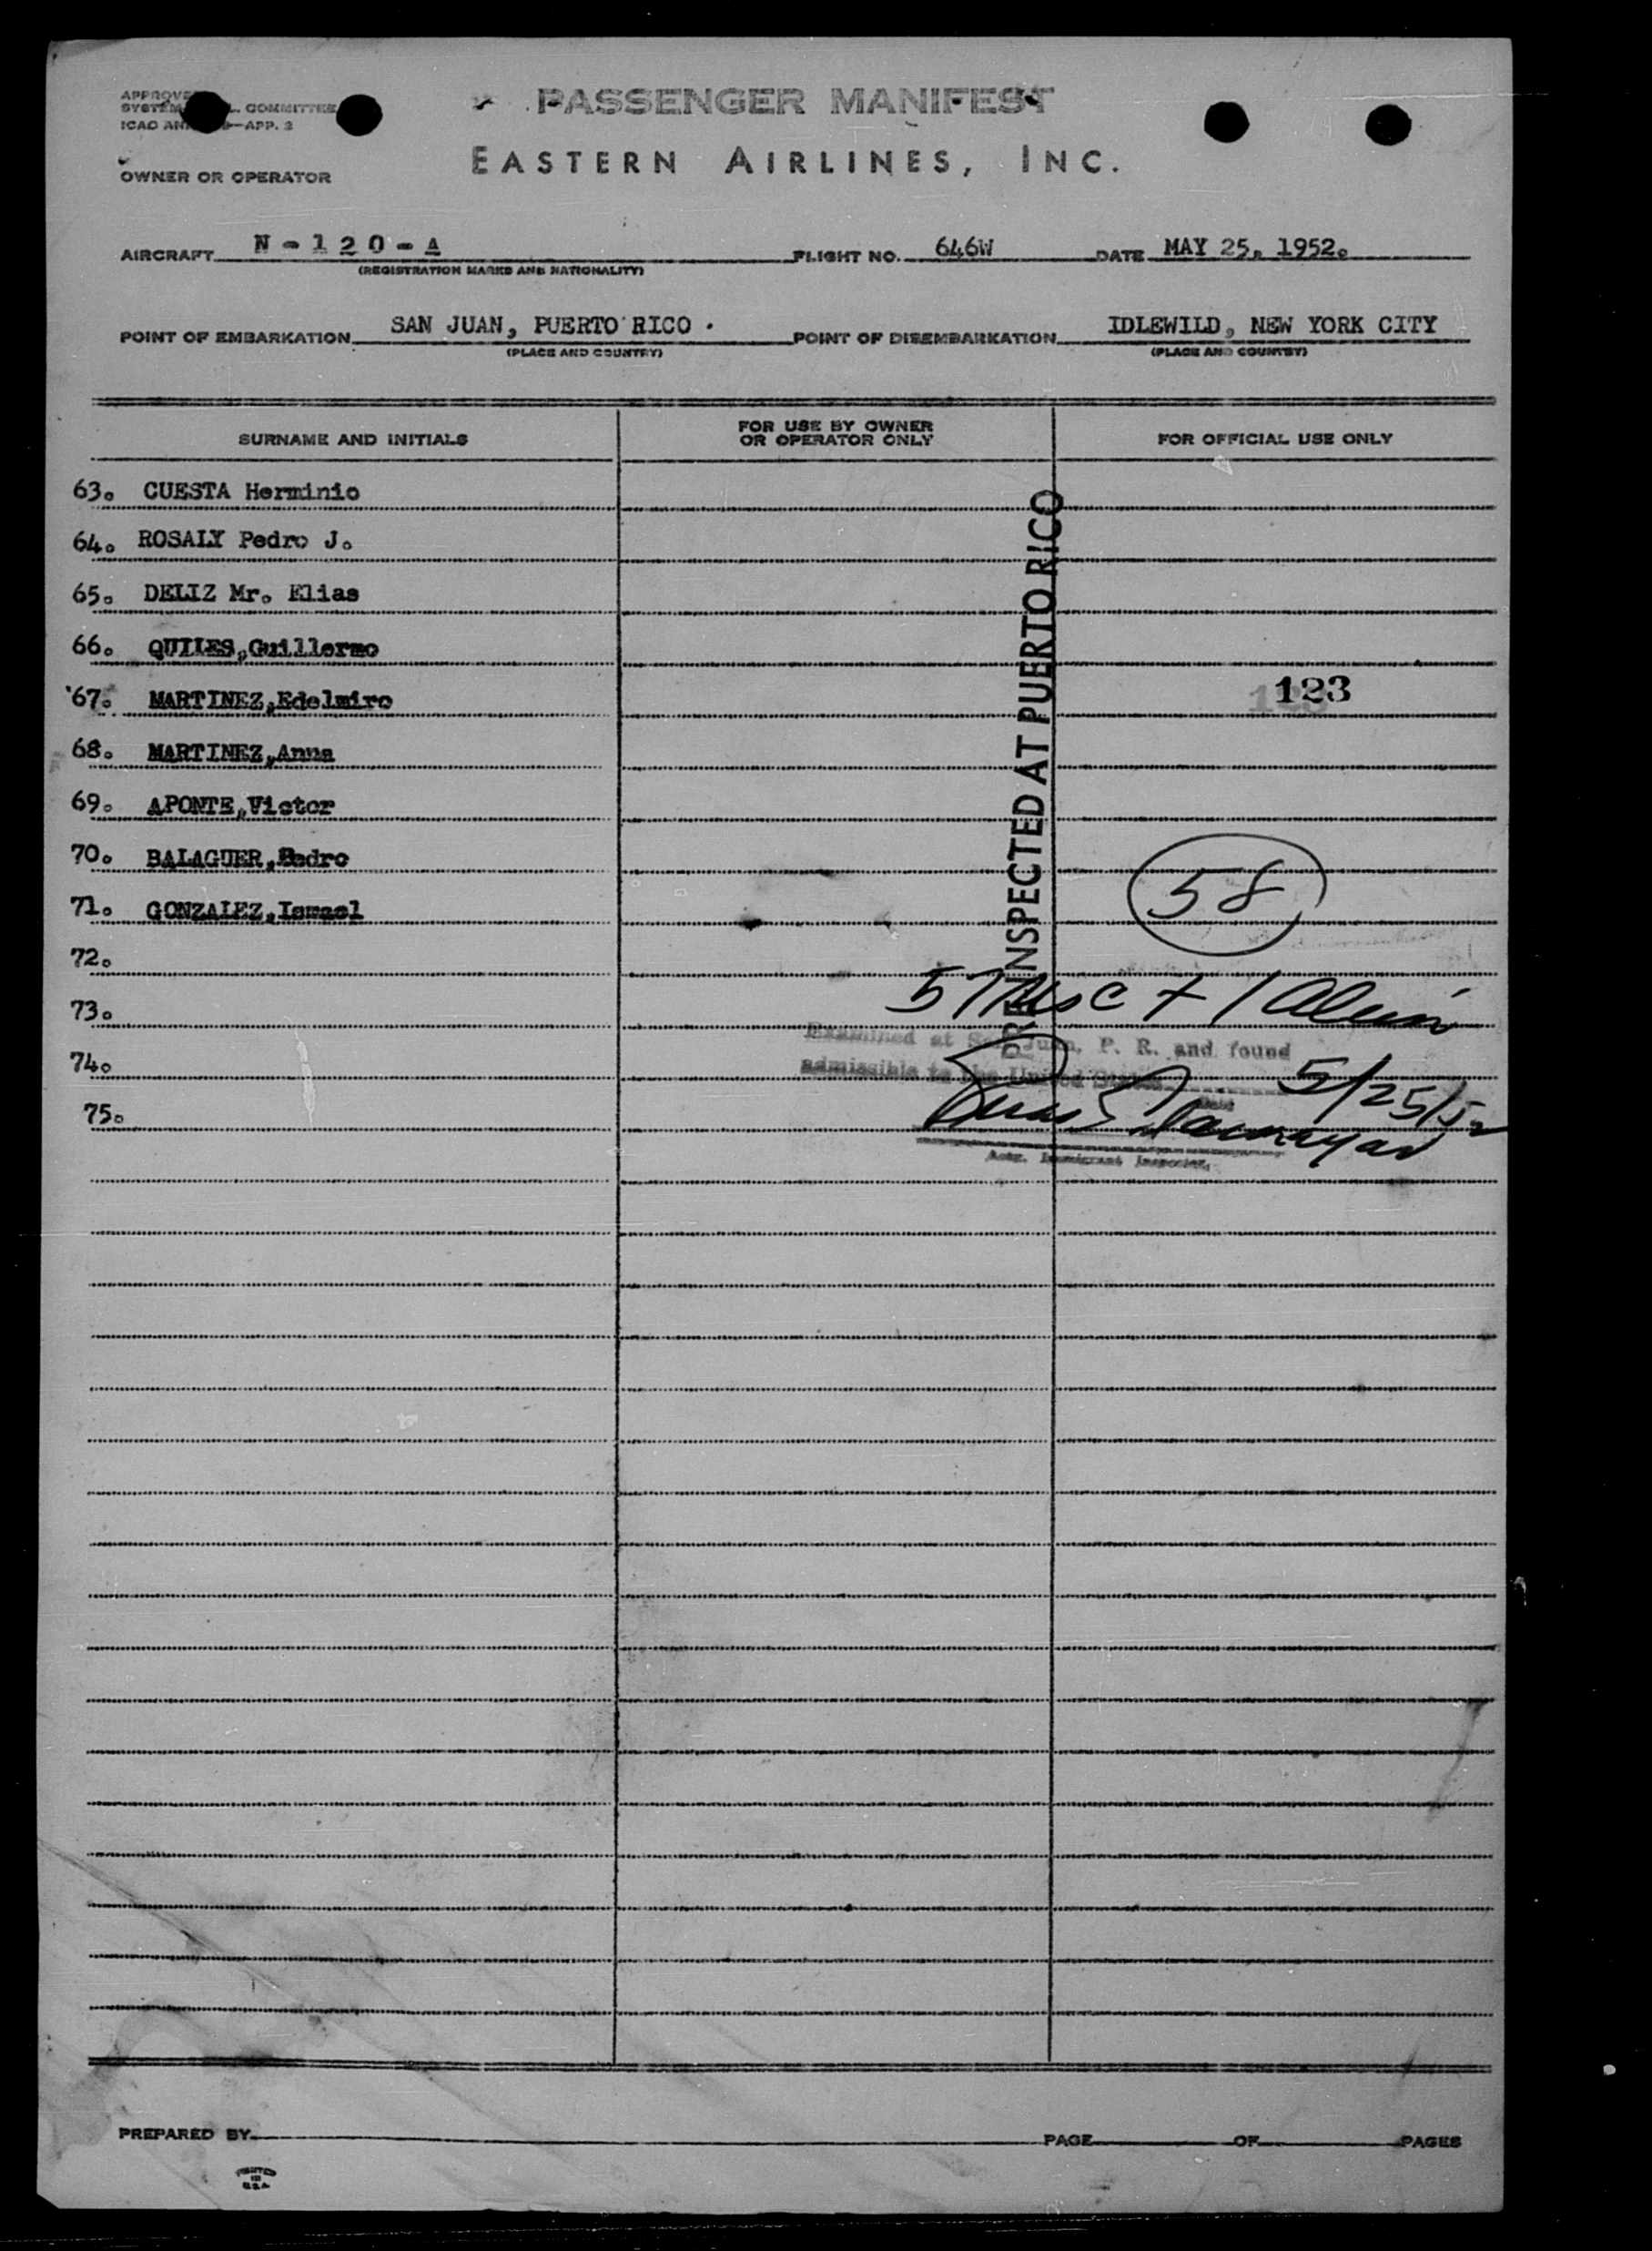 PASSENGER MANIFEST
COMMITTEE
ICAO —APP. 2
EASTERN AIRLINES, INC.
OWNER OR OPERATOR
AIRCRAFT N-120-A FLIGHT NO. 646W DATE MAY 25, 1952.
(REGISTRATION MARKS AND NATIONALITY)
POINT OF EMBARKATION SAN JUAN, PUERTO RICO . POINT OF DISEMBARKATION IDLEWILD, NEW YORK CITY
(PLACE AND COUNTRY) (PLACE AND COUNTRY)
SURNAME AND INITIALS
FOR USE BY OWNER
OR OPERATOR ONLY
FOR OFFICIAL USE ONLY
63. CUESTA Herminio
64. ROSALY Pedro J.
65. DELIZ Mr. Elias
66. QUILES,Guillermo
67. MARTINEZ,Edelmiro
68. MARTINEZ,Anna
69. APONTE,Victor
70. BALAGUER,Pedro
71. GONZALEZ,Ismael
72.
73.
74.
75.
INSPECTED AT PUERTO RICO
123
58
57 + 1 Alien
Examined at San Juan, P. R. and found
admissible to the United States
5/25/52
Actg. Immigrant Inspector.
PREPARED BY PAGE OF PAGES
PRINTED
IN
U.S.A.